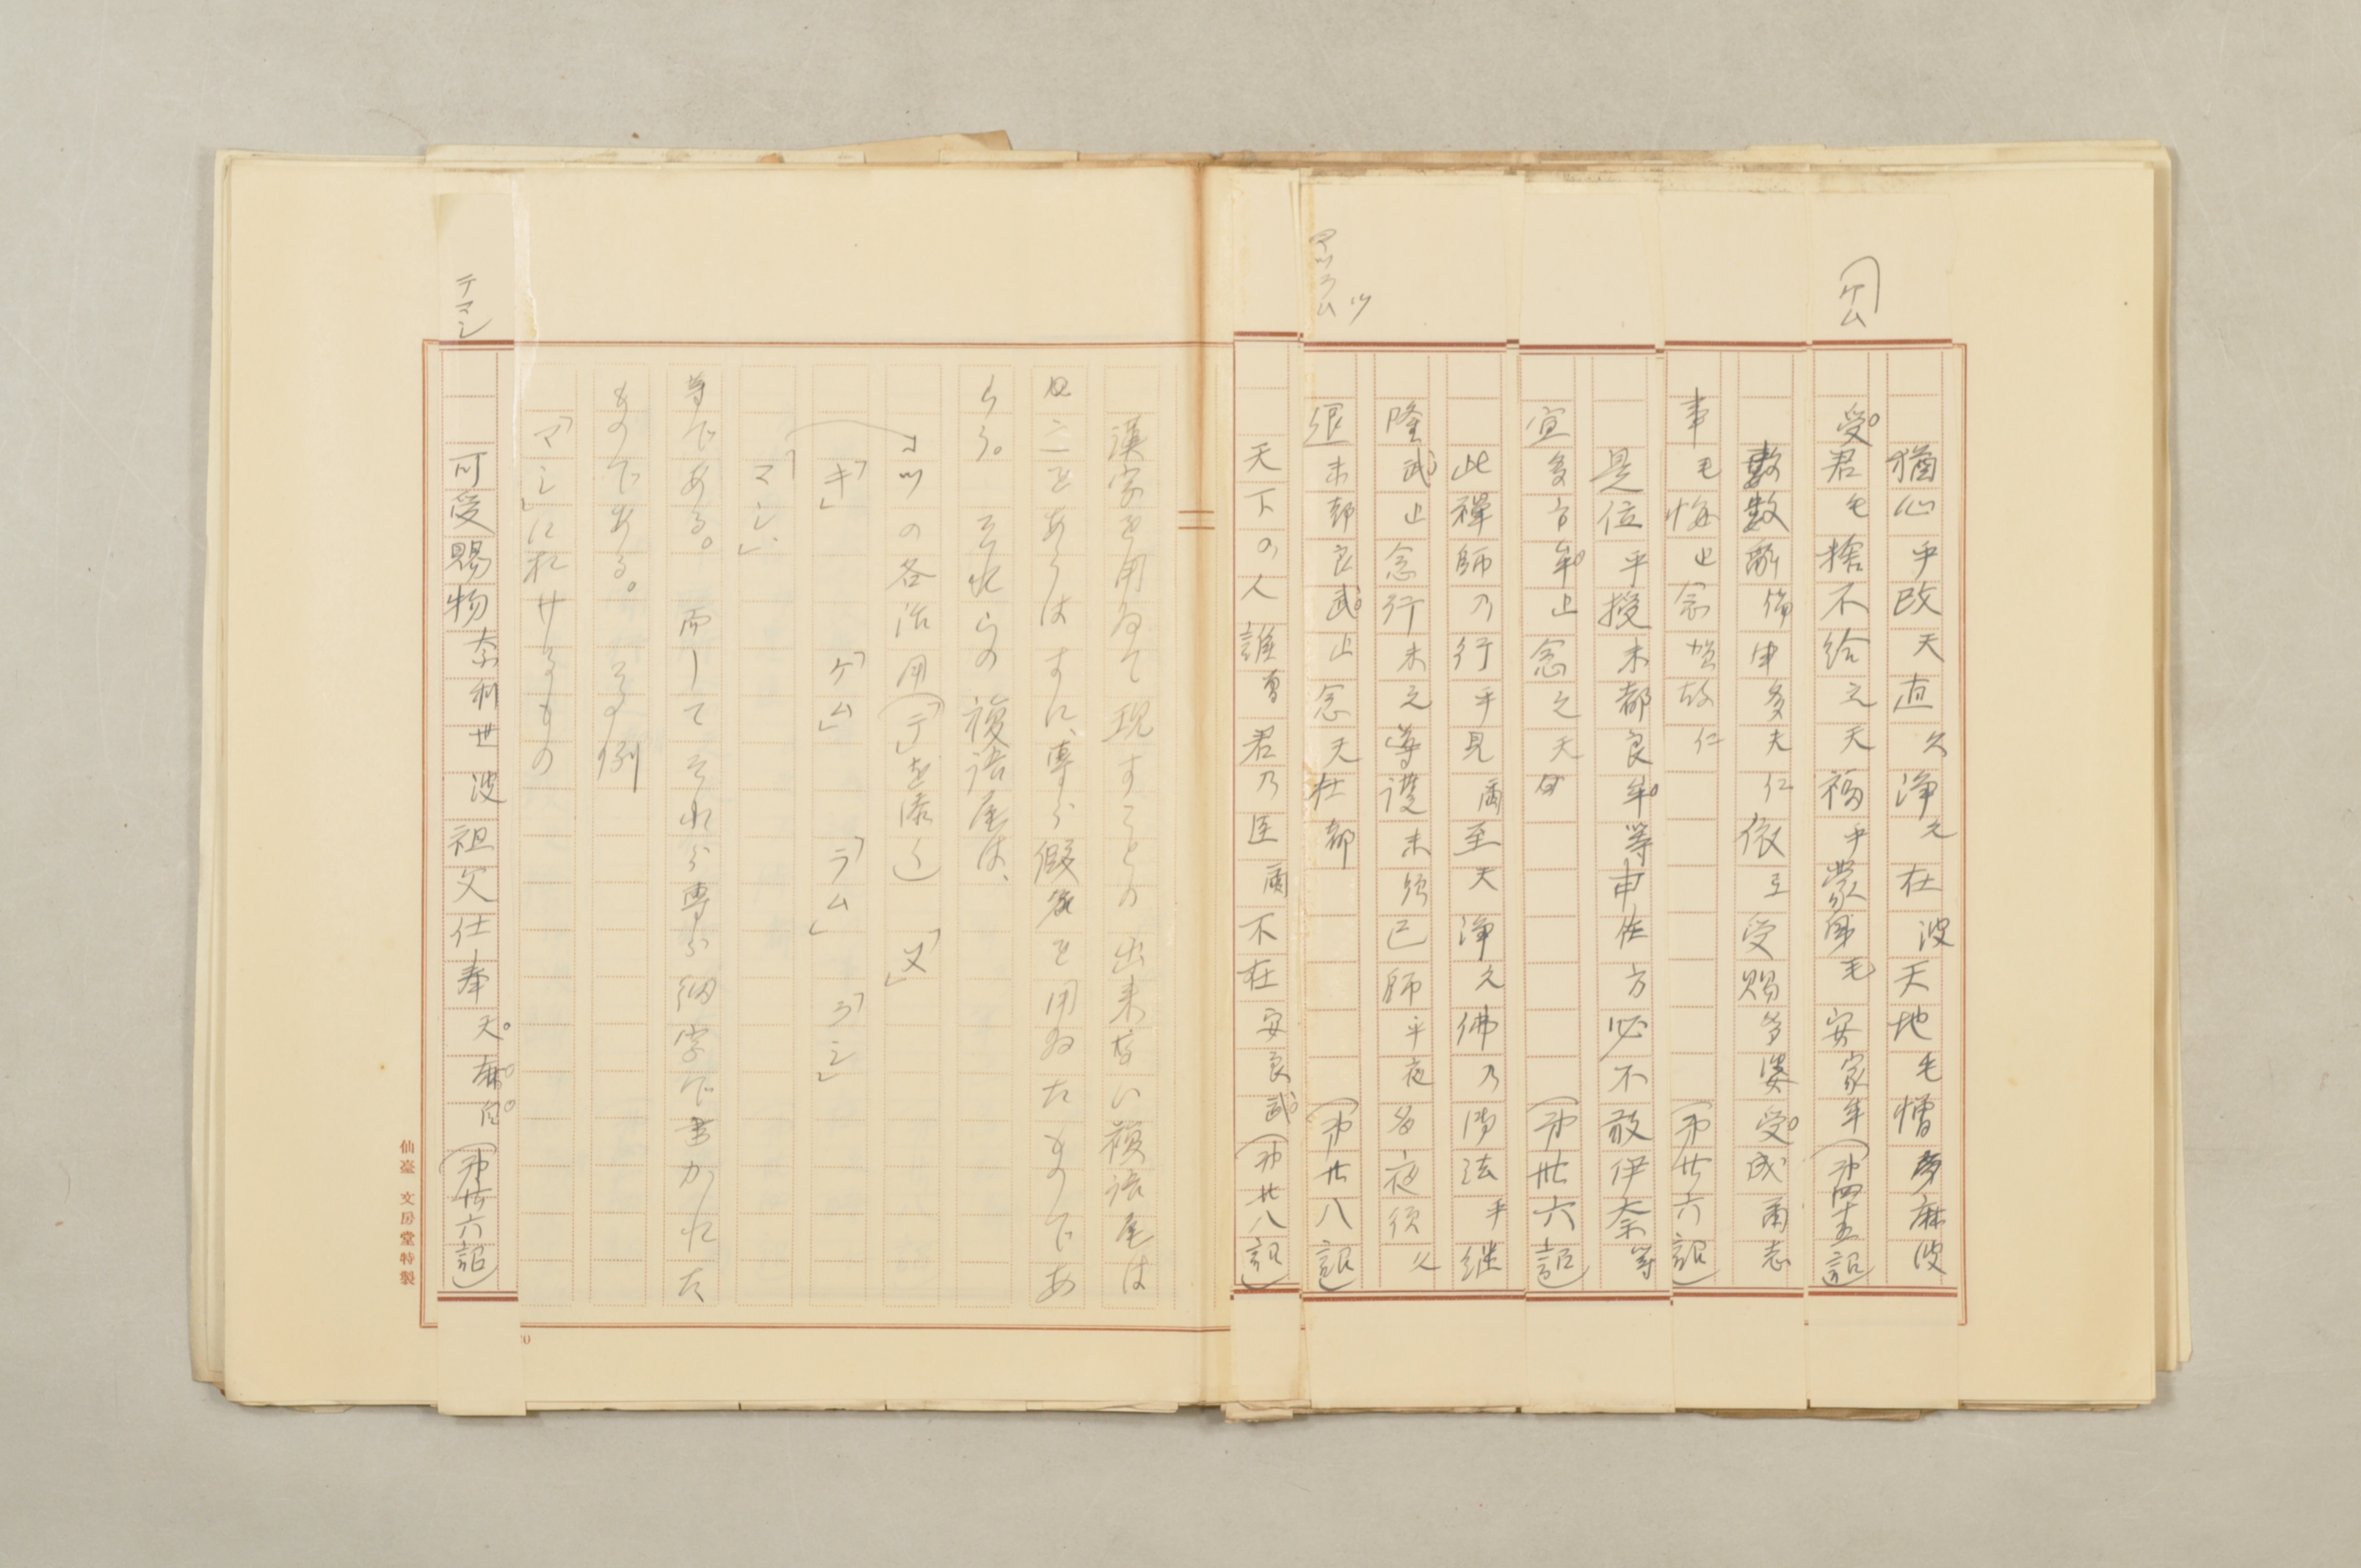 ケム
猶心乎改天直久浄久在波天地毛憎多麻波
受君毛捨不給之天福乎蒙身毛安家牟(第四十五詔)
数数辞備申多夫仁依弖受賜多婆受成爾志
事毛悔止念賀故仁(第廿六詔)
是位乎授末都良牟等申佐方必不敢伊奈等
宣多方牟止念之天(第卅六詔)
此禅師乃行乎見爾至天浄久仏乃御法乎継
隆武止念行末之導護末須己師乎夜
マツラム
退末都良武止念天在都(第廿八詔)
天下の人誰曽君乃臣爾不在安良武(第廿八詔)
漢字を用ゐて現すことの出来ない複語尾は
ことをあらはすに、専ら仮名を用ゐたものであ
らう。それらの複語尾は、
ツの各活用(「テ」を除く)「ヌ」
「キ」「ケム」「ラム」「ラシ」
「マシ」
等である。而してそれら専ら仮字で書かれた
ものである。その例
「マシ」に於けるもの
テマシ
可受賜物奈利世波祖父仕奉天麻自(第廿六詔)
仙臺 文房堂特製